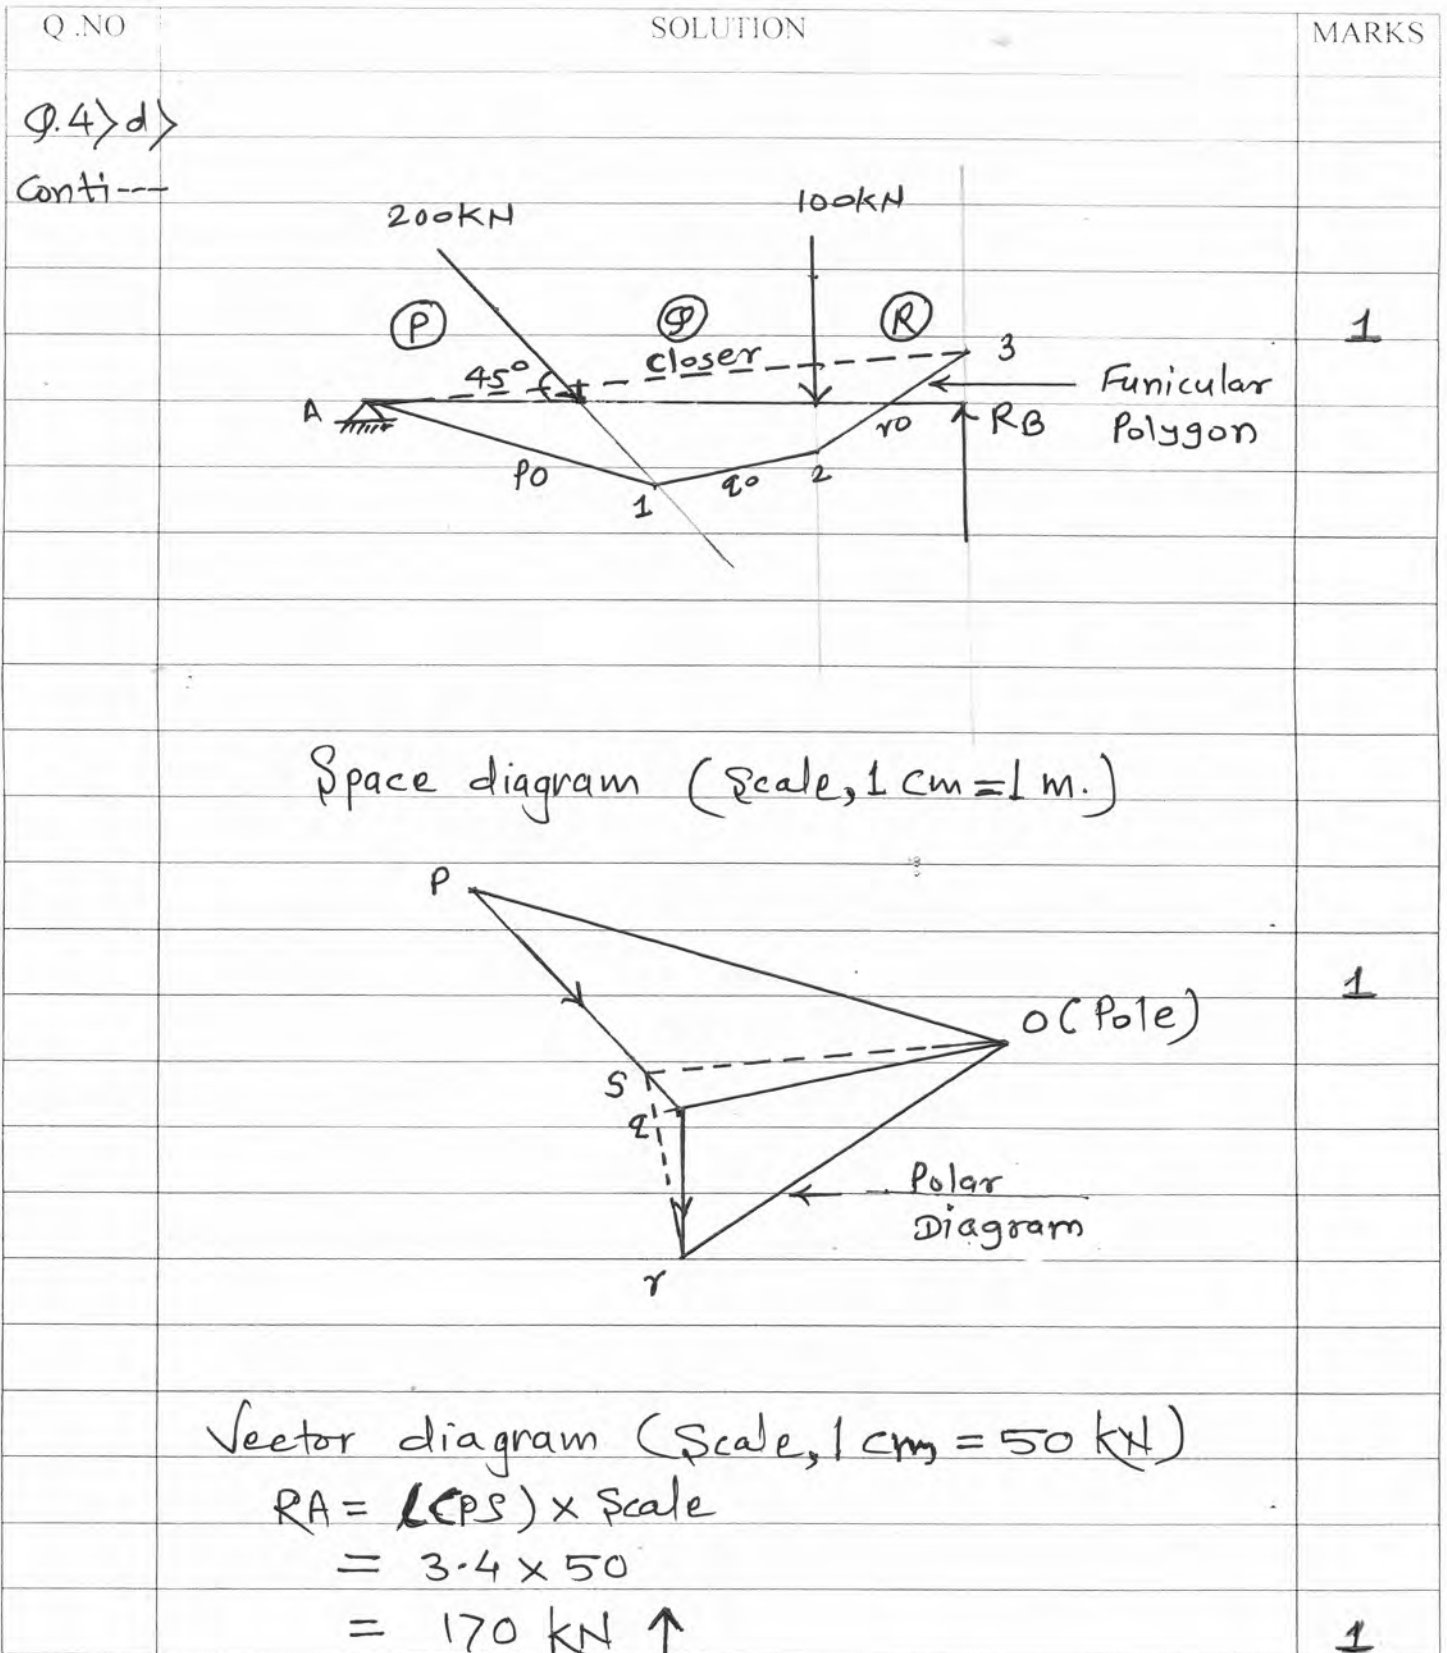 Q.NO SOLUTION MARKS
Q.4>d>
Conti---
200KN
100KN
P
Q
R
1
closer
3
45°
Funicular
Polygon
A
RB
ro
po
qo
2
1
Space diagram (Scale, 1 cm = 1 m.)
P
1
O (Pole)
S
q
Polar
Diagram
r
Vector diagram (Scale, 1 cm = 50 kN)
RA = l(PS) x Scale
= 3.4 x 50
= 170 kN ↑
1